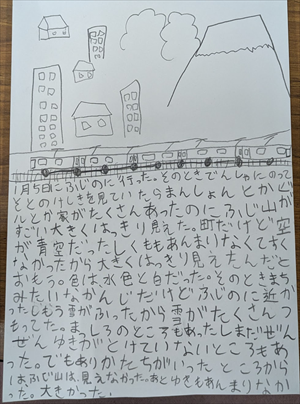 1月5日にふじのに行った。そのときでんしゃにのって
そとのけしきを見ていたらまんしょんとかビ
ルとか家がたくさんあったのにふじ山が
すごい大きくはっきり見えた。町だけど空
が青空だったしくももあんまりなくてすく
なかったから大きくはっきり見えたんだと
おもう。色は水色と白だった。そのときまち
みたいなかんじだけどふじのに近か
ったしもう雪がふったから雪がたくさんつ
もってた。まっしろのところもあったしまだぜん
ぜんゆきがとけていないところもあ
った。でもありがたちがいったところから
はふじ山は、見えなかった。あとゆきもあんまりなか
った。大きかった。